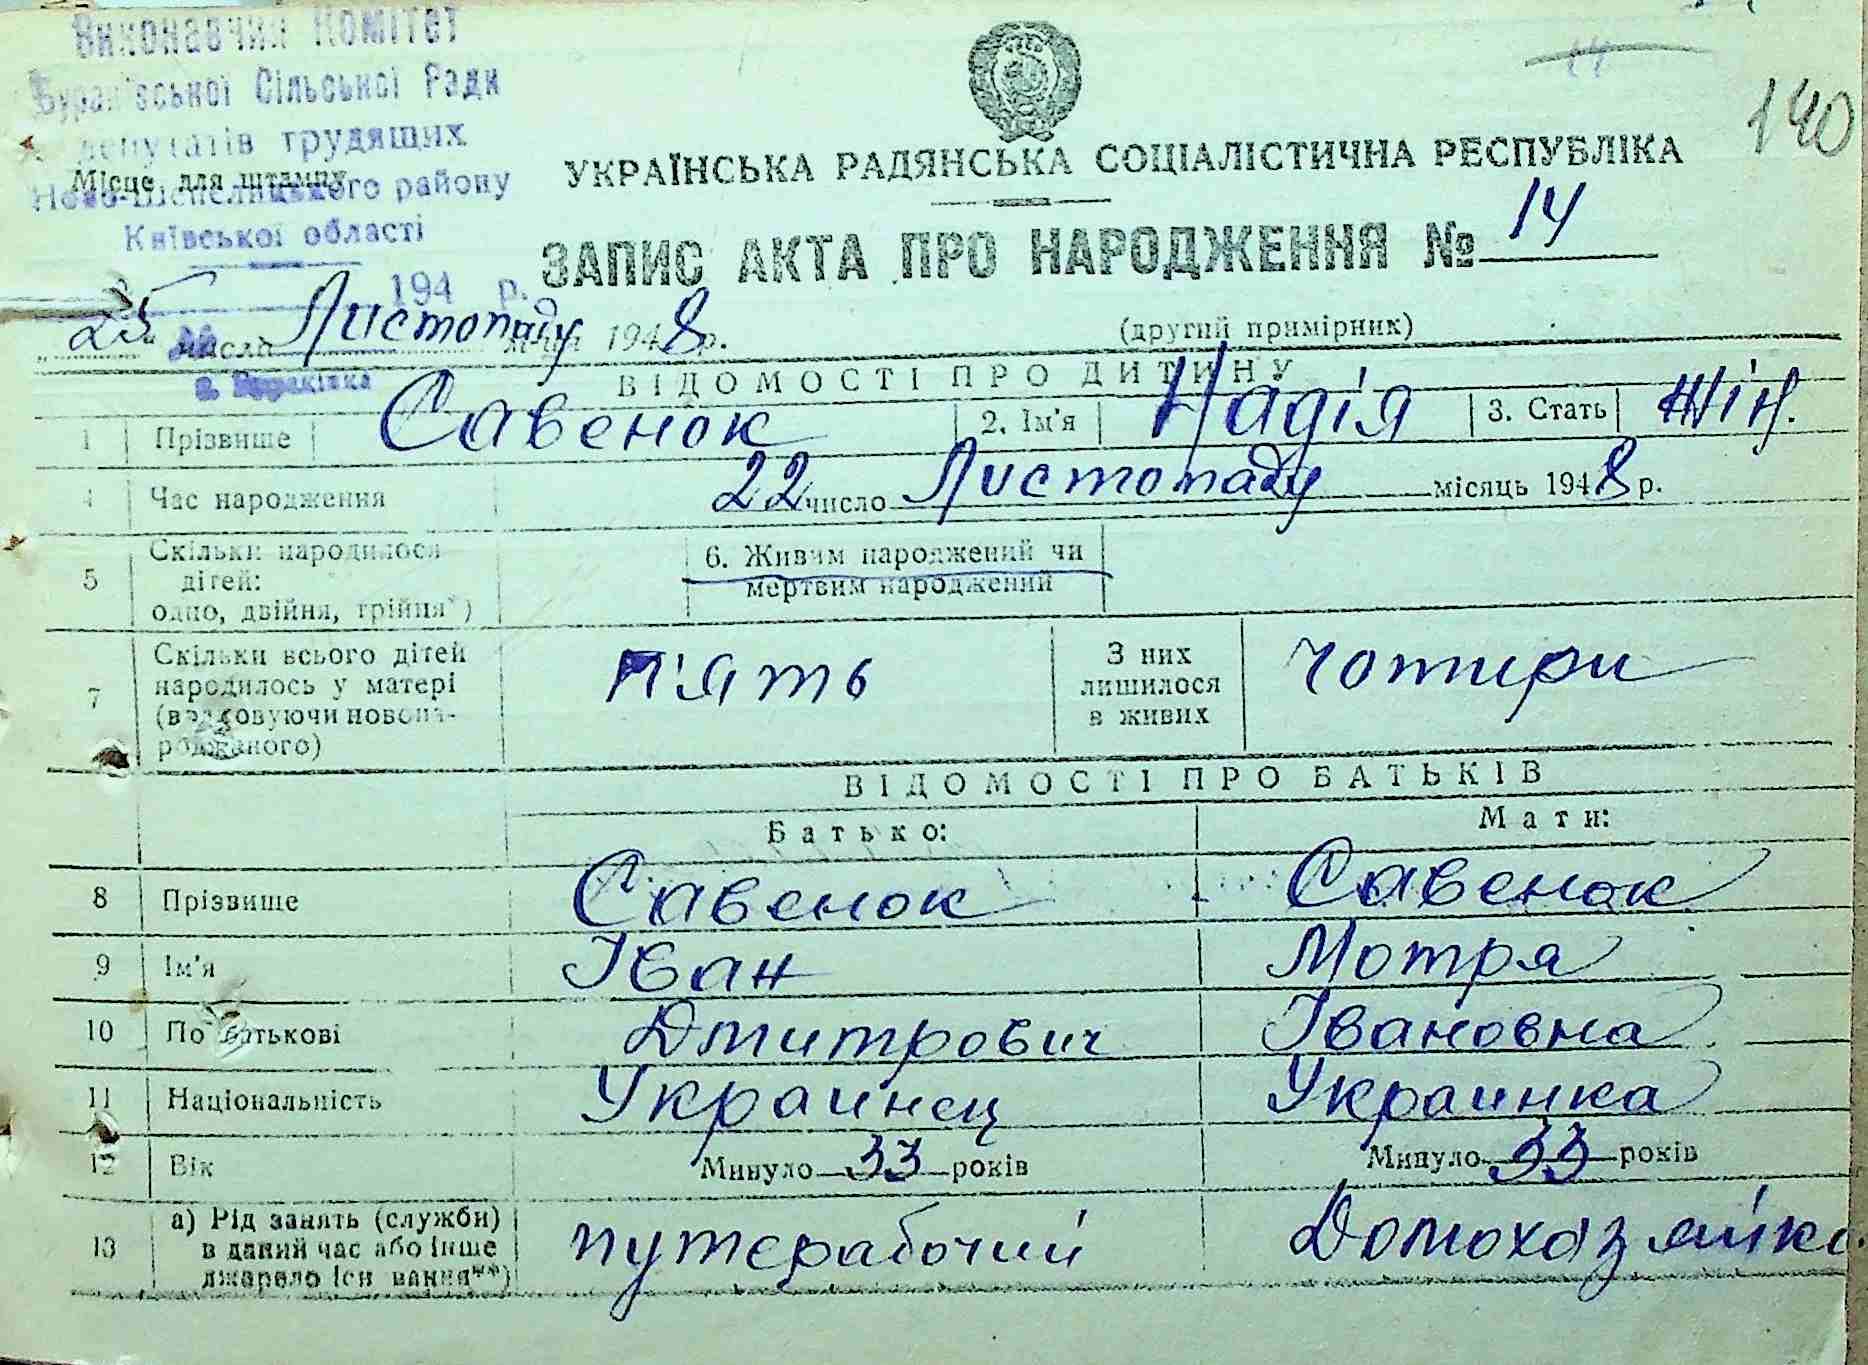 Виконавчий Комітет
Бураківської Сільської Ради
депутатів трудящих
Ново-Шепелицького району
Київської області
194 р.
с. Бураківка
Місце для штампу
14
140
УКРАЇНСЬКА РАДЯНСЬКА СОЦІАЛІСТИЧНА РЕСПУБЛІКА
ЗАПИС АКТА ПРО НАРОДЖЕННЯ № 14
"25" число Листопаду м-ця 1948 р.
(другий примірник)
ВІДОМОСТІ ПРО ДИТИНУ
1 Прізвище Савенок 2. Ім'я Надія 3. Стать Жін.
4 Час народження 22 число Листопаду місяць 1948 р.
5 Скільки народилося дітей: одно, двійня, трійня*) 6. Живим народжений чи мертвим народжений
7 Скільки всього дітей народилось у матері (враховуючи новонародженого) П'ять З них лишилося в живих Чотири
ВІДОМОСТІ ПРО БАТЬКІВ
Батько: Мати:
8 Прізвище Савенок Савенок
9 Ім'я Іван Мотря
10 По батькові Дмитрович Івановна
11 Національність Украинец Украинка
12 Вік Минуло 33 років Минуло 33 років
13 а) Рід занять (служби) в даний час або інше джерело існування**) путерабочий Домохазяйка